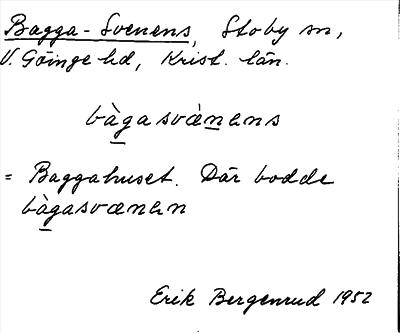 Bagga-Svenens, Stoby sn,
V. Göinge hd, Krist. län.
bàgasvànens
= Baggahuset. Där bodde
bàgasvænen
Erik Bergenrud 1952